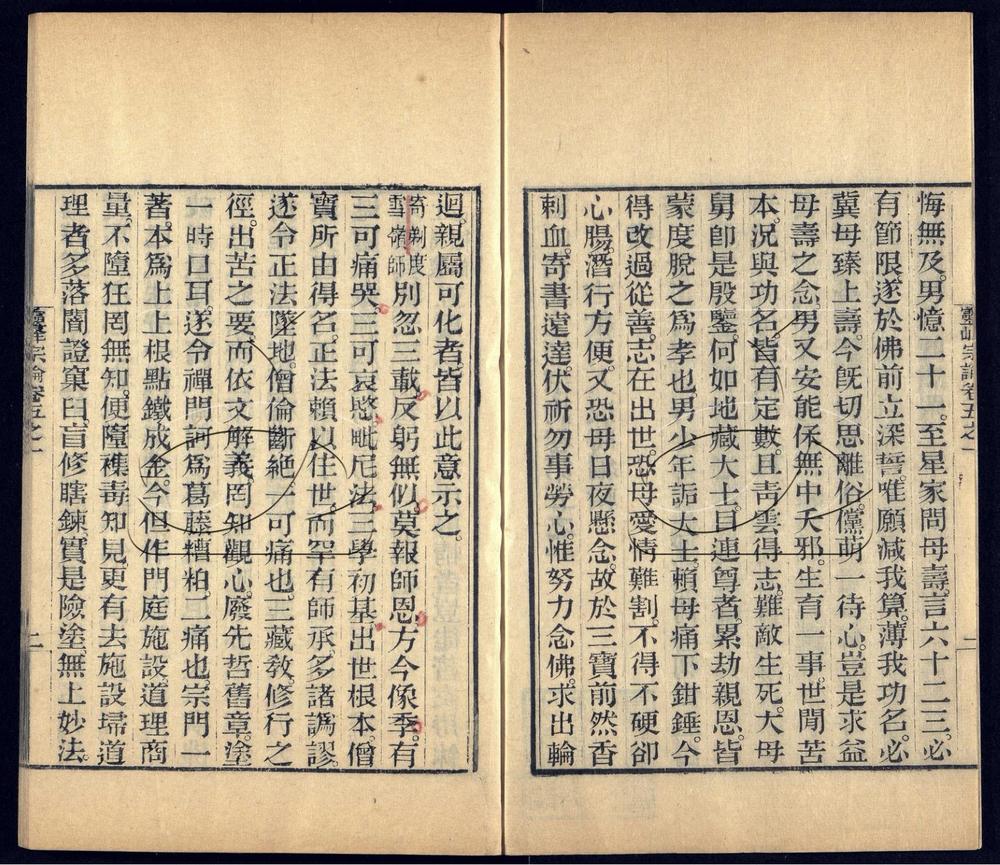 悔無及。男憶二十一。至星家問母壽。言六十二三。必
有節限。遂於佛前立深誓。唯願減我算。薄我功名。必
冀母臻上壽。今旣切思離俗。儻萌一待心。豈是求益
母壽之念。男又安能保無中夭邪。生育一事。世間苦
本。況與功名。皆有定數。且靑雲得志。難敵生死。大母
舅卽是殷鑒。何如地藏大士。目連尊者。累劫親恩。皆
蒙度脫之爲孝也。男少年詬大士。賴母痛下鉗錘。今
得改過從善。志在出世。恐母愛情難割。不得不硬卻
心腸。潛行方便。又恐母日夜懸念。故於三寶前然香
刺血。寄書遠達。伏祈勿事勞心。惟努力念佛。求出輪
靈峰宗論卷五之一
迴。親屬可化者皆以此意示之。
寄剃度雪嶺師
別忽三載。反躬無似。莫報師恩。方今像季。有
三可痛哭。三可哀愍。毗尼法。三學初基。出世根本。僧
寶所由得名。正法賴以住世。而罕有師承。多諸譌謬。
遂令正法墜地。僧倫斷絕。一可痛也。三藏敎。修行之
徑。出苦之要。而依文解義。罔知觀心。廢先哲舊章。塗
一時口耳。遂令禪門訶爲葛藤糟粕。二痛也。宗門一
著。本爲上上根點鐵成金。今但作門庭施設道理商
量。不墮狂罔無知。便墮襍毒知見。更有去施設埽道
理者。多落闇證窠臼。盲修瞎鍊。實是險塗。無上妙法。
靈峰宗論卷五之一
二